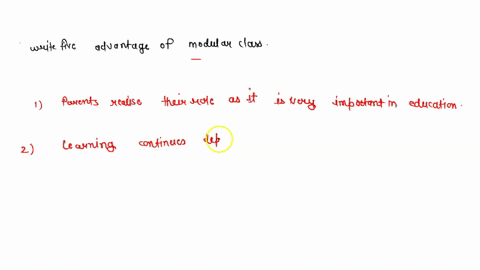 write five advantage of modular class.
1) Parents realise their role as it is very important in education.
2) Learning continues dep